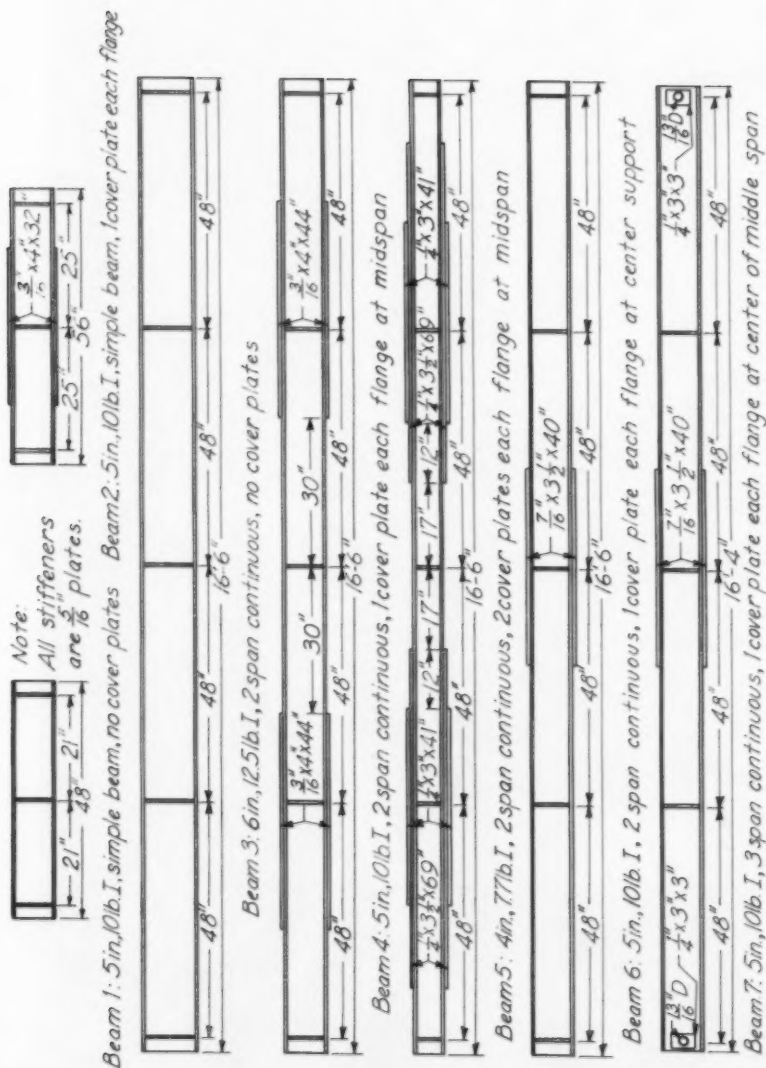 Note:
All stiffeners
are 5/16" plates.
21" 21"
48"
3/16"x4"x32"
25" 25"
56"
Beam 1: 5in.,10lb.I, simple beam, no cover plates
Beam 2: 5in.,10lb.I, simple beam, 1 cover plate each flange
48" 48" 48" 48"
16'-6"
Beam 3: 6in.,12.5lb.I, 2 span continuous, no cover plates
3/16"x4"x44" 30" 30" 3/16"x4"x44"
48" 48" 48" 48"
16'-6"
Beam 4: 5in.,10lb.I, 2 span continuous, 1 cover plate each flange at midspan
1/4"x3 1/2"x69" 1/4"x3"x41" 12" 17" 17" 12" 1/4"x3 1/2"x69" 1/4"x3"x41"
48" 48" 48" 48"
16'-6"
Beam 5: 4in.,7.7lb.I, 2 span continuous, 2 cover plates each flange at midspan
7/16"x3 1/2"x40"
48" 48" 48" 48"
16'-6"
Beam 6: 5in.,10lb.I, 2 span continuous, 1 cover plate each flange at center support
13/16" D 1/4"x3"x3" 7/16"x3 1/2"x40" 1/4"x3"x3" 13/16" D
48" 48" 48" 48"
16'-4"
Beam 7: 5in.,10lb.I, 3 span continuous, 1 cover plate each flange at center of middle span